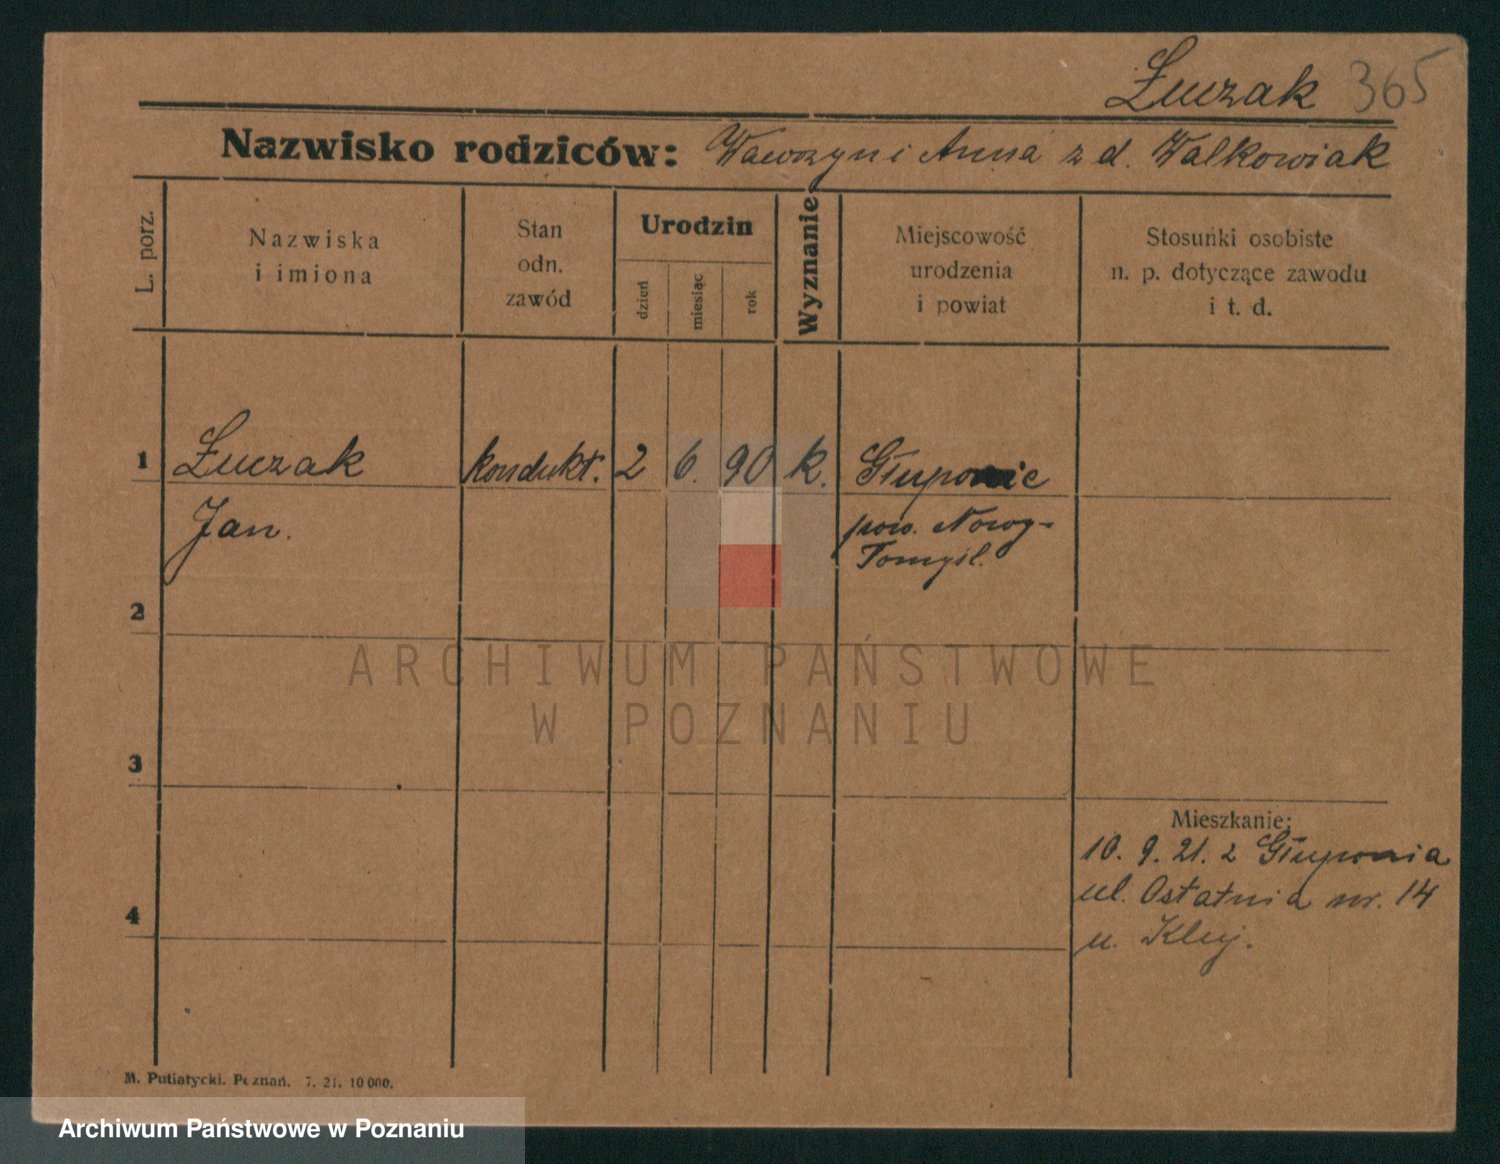 Łuczak 365
Nazwisko rodziców: Wawrzyn i Anna z d. Walkowiak
L. porz.
Nazwiska
i imiona
Stan
odn.
zawód
Urodzin
dzień
miesiąc
rok
Wyznanie
Miejscowość
urodzenia
i powiat
Stosunki osobiste
n. p. dotyczące zawodu
i t. d.
1 Łuczak kondukt. 2 6. 90 k. Głuponie
Jan. pow. Nowy-
Tomyśl.
2
ARCHIWUM PAŃSTWOWE
W POZNANIU
3
Mieszkanie:
10. 9. 21. z Głuponia
ul. Ostatnia nr. 14
u. Kluj.
4
M. Putiatycki. Poznań. 7. 21. 10 000.
Archiwum Państwowe w Poznaniu